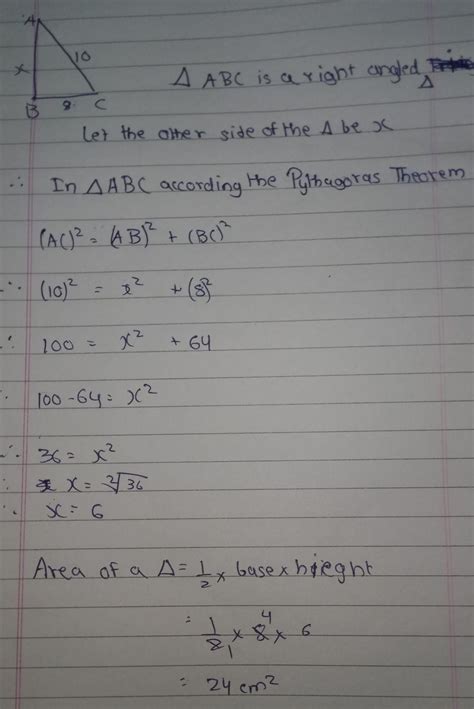 A
10
x
B 8 C
Δ ABC is a right angled
Δ
Let the other side of the Δ be x
∴ In Δ ABC according the Pythagoras Theorem
(AC)² = (AB)² + (BC)²
∴ (10)² = x² + (8)²
∴ 100 = x² + 64
∴ 100 - 64 = x²
∴ 36 = x²
∴ x = ²√36
∴ x = 6
Area of a Δ = 1/2 x base x hieght
= 1/2 1 x 8 4 x 6
= 24 cm²